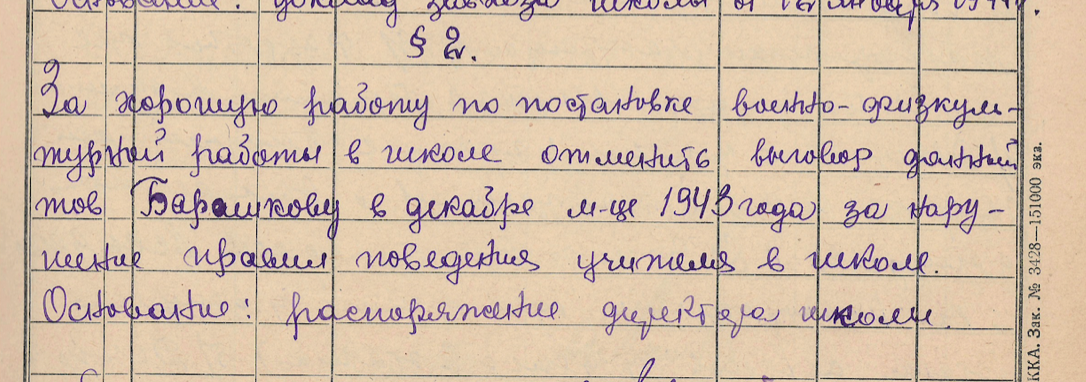 Основание: доклад завхоза школы от 12 января 1944 г.
§ 2.
За хорошую работу по постановке военно-физкуль-
турной работы в школе отменить выговор данный
тов Барашкову в декабре м-це 1943 года за нару-
шение правил поведения учителя в школе.
Основание: распоряжение директора школы.
ККА. Зак. № 3428—151000 экз.